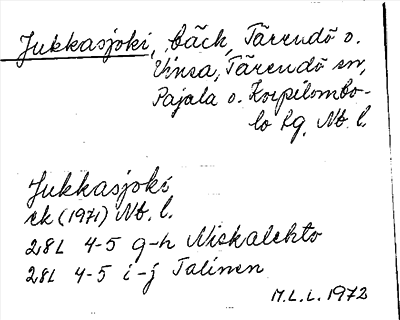 Jukkasjoki, bäck, Tärendö o.
Vinsa, Tärendö sn,
Pajala o. Korpilombo-
lo tg. Nb. l.
Jukkasjoki
ek (1971) Nb. l.
28L 4-5 g-h Niskalehto
28L 4-5 i-j Talinen
M.L.L. 1972